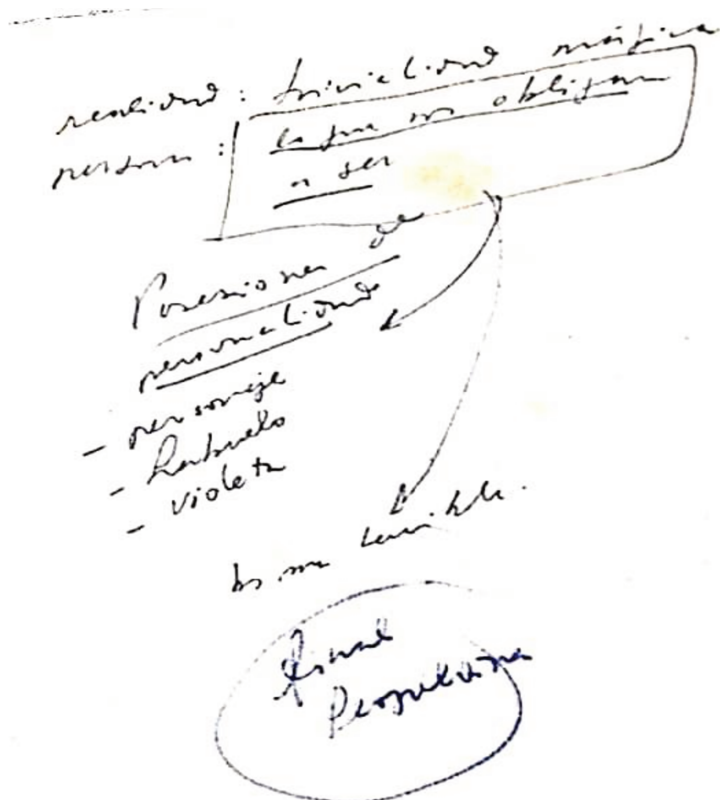 realidad: trivialidad mágica
persona: lo que nos obligan
a ser
Posesiones de
personalidad
- personaje
- 
- violeta
lo más terrible.
final